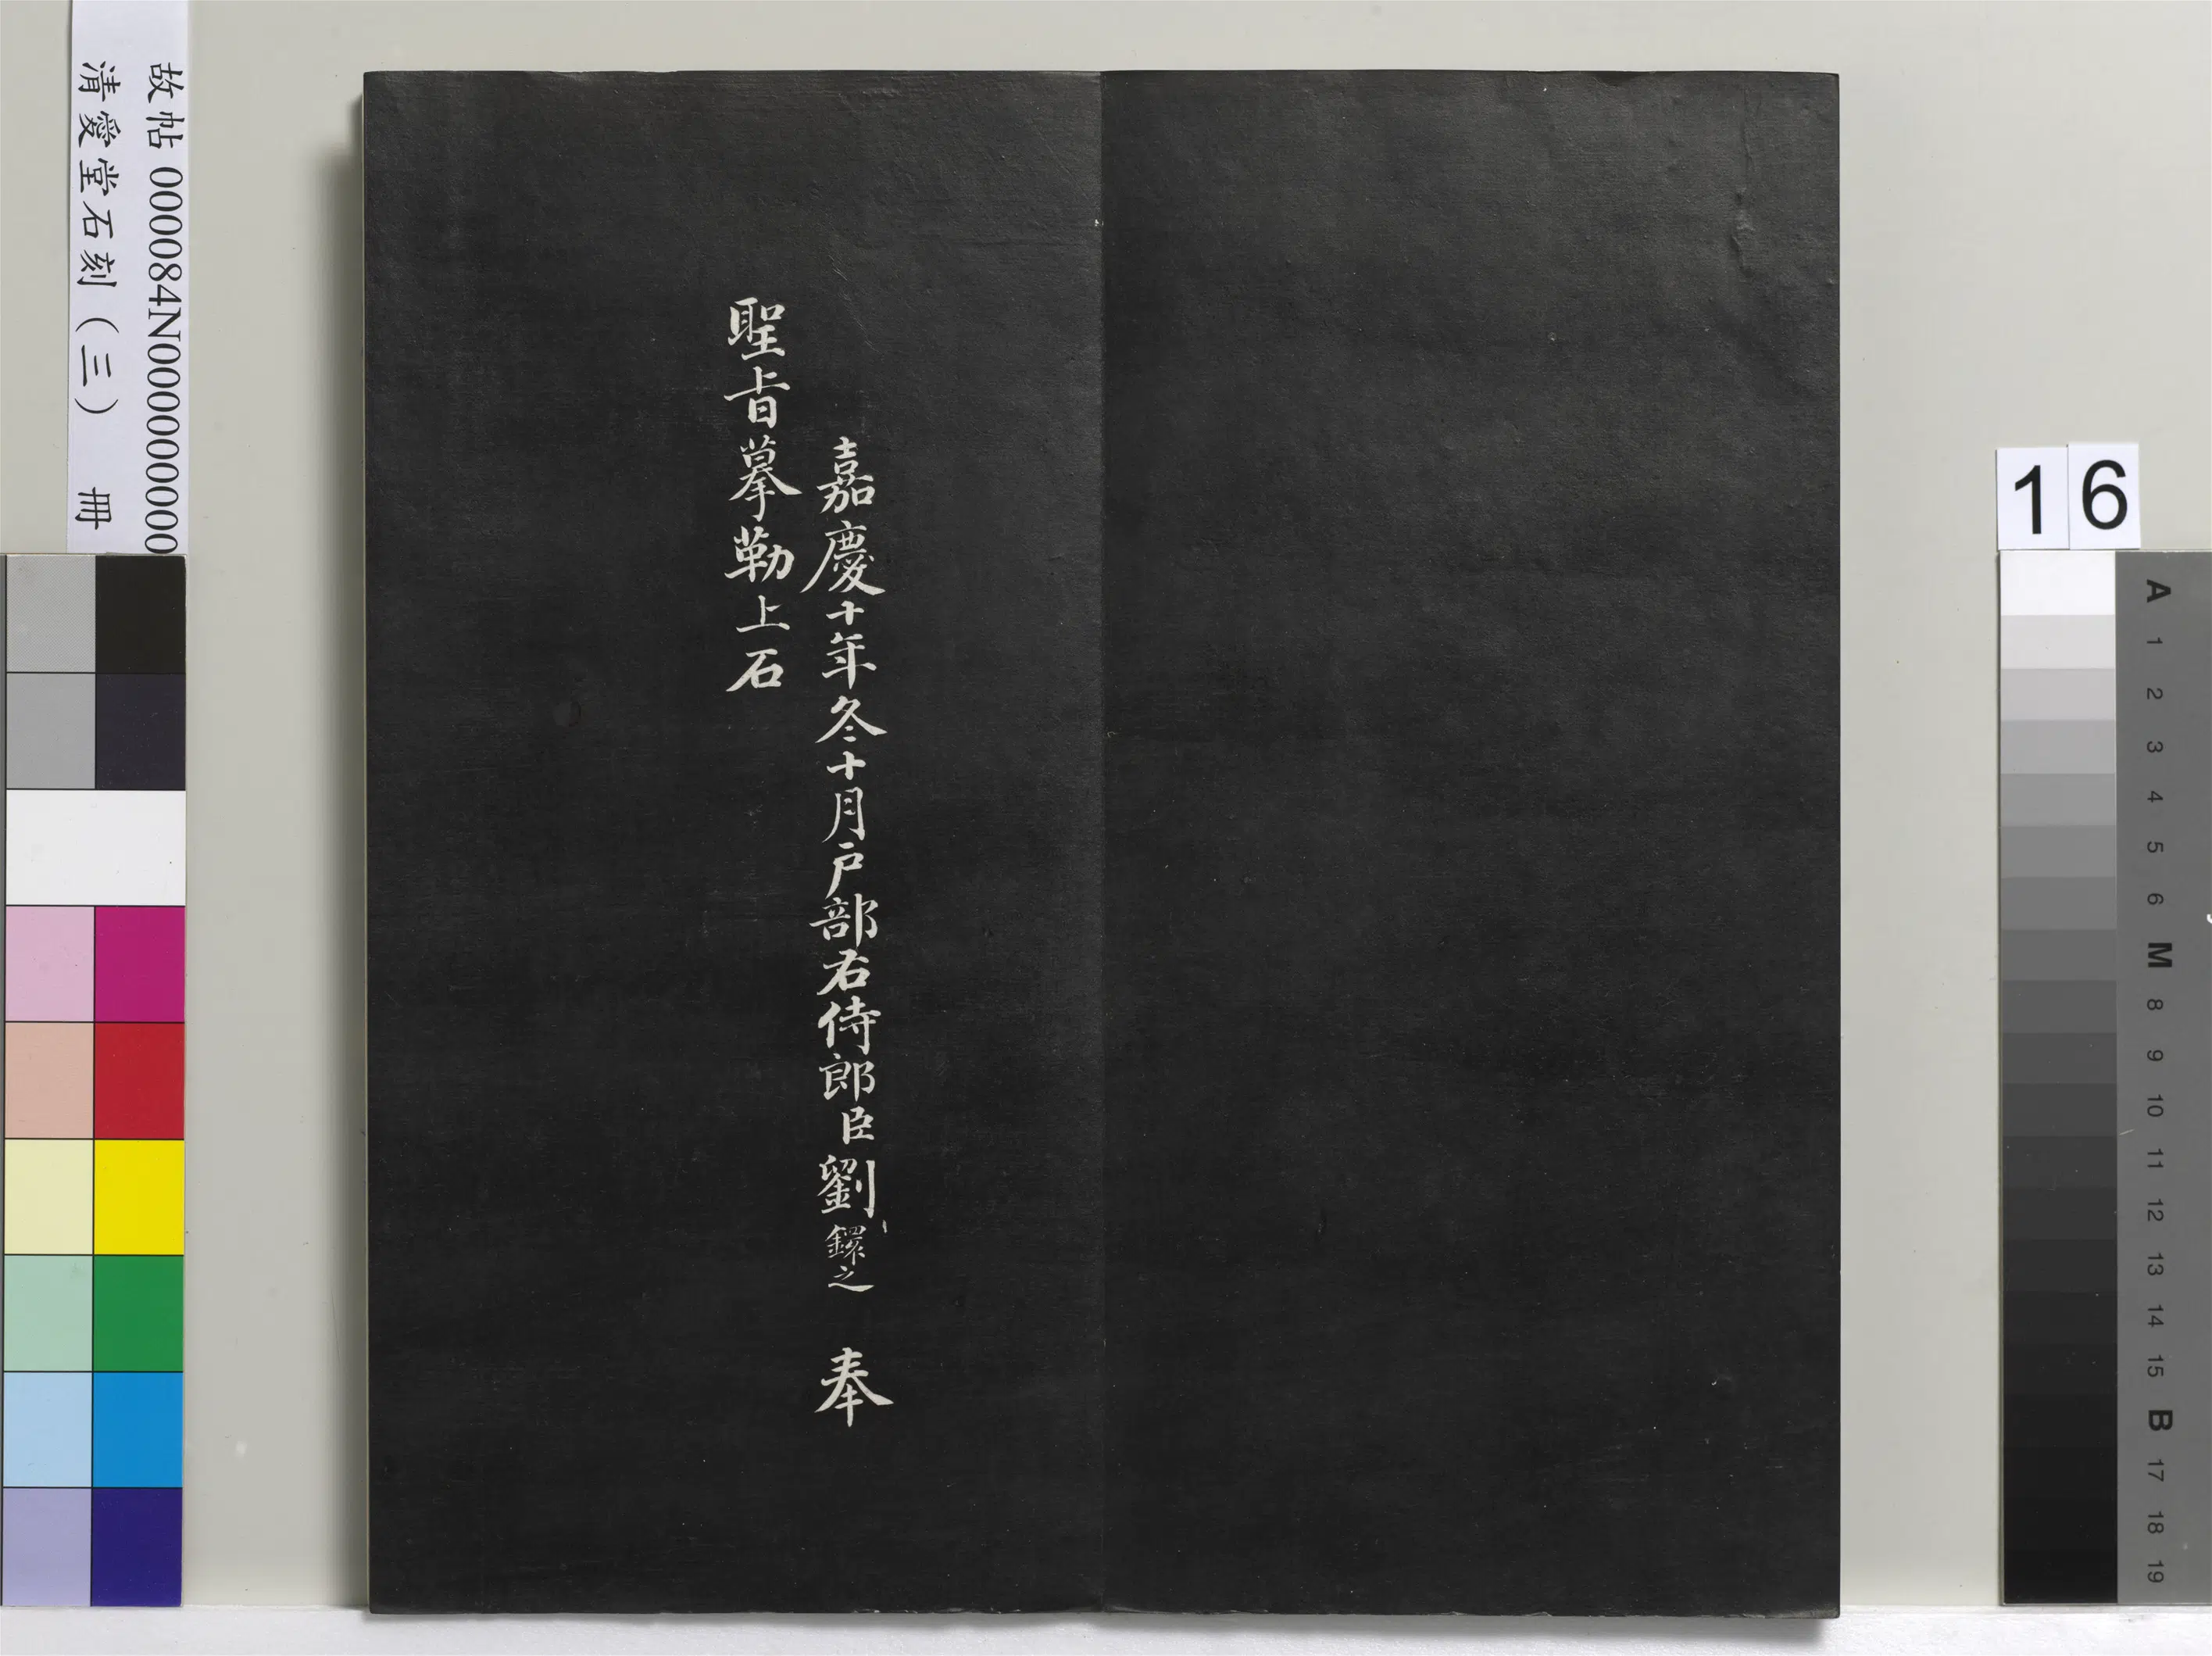 嘉慶十年冬十月戶部右侍郎臣劉鐶之 奉
聖旨摹勒上石
故帖 000084N000000000
清愛堂石刻（三） 冊
16
A
1
2
3
4
5
6
M
8
9
10
11
12
13
14
15
B
17
18
19